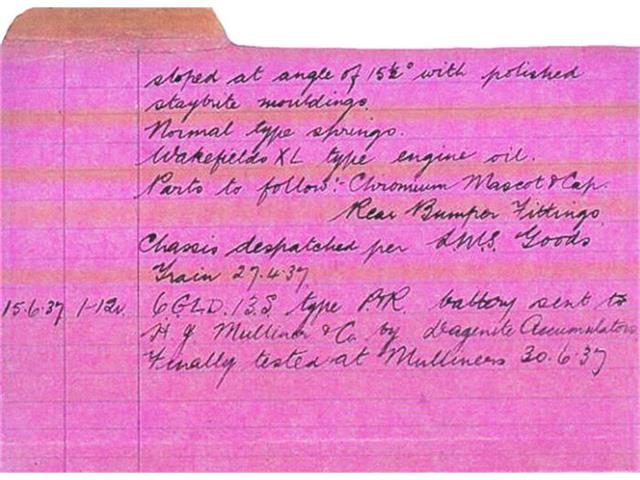 sloped at angle of 15½° with polished
staybrite mouldings.
Normal type springs.
Wakefields XL type engine oil.
Parts to follow:- Chromium Mascot & Cap.
Rear Bumper Fittings
Chassis despatched per L.M.S. Goods
Train 27.4.37
15.6.37 1-12v. 6.G.L.D. 13.S type P.R. battery sent to
H J Mulliner & Co by Dagenite Accumulators
Finally tested at Mulliners 30.6.37